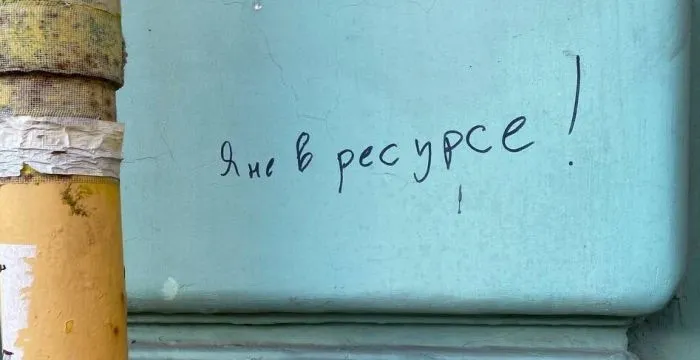 Я не в ресурсе!